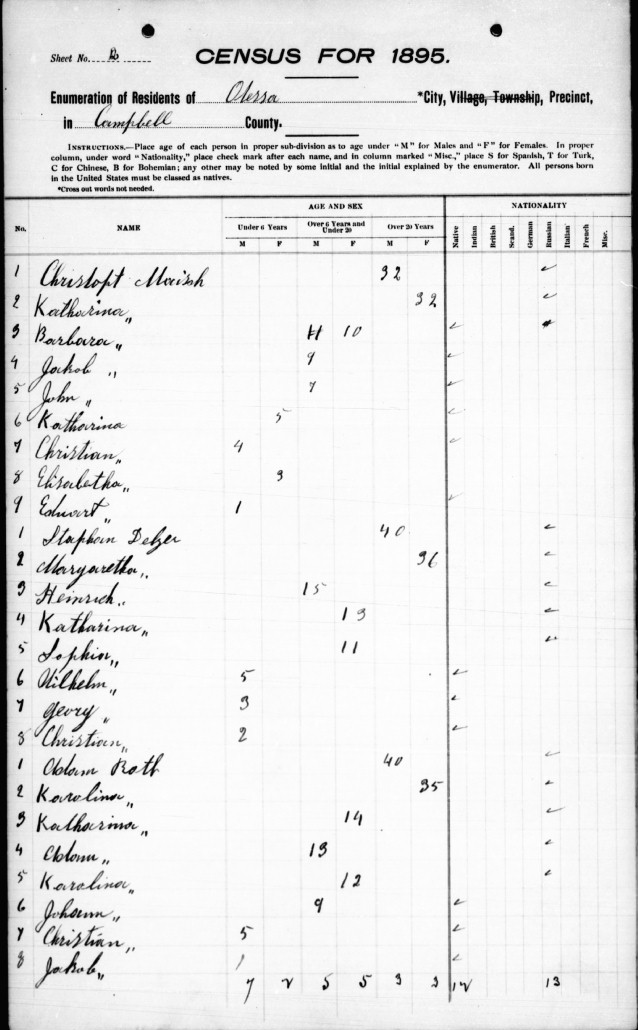 Sheet No.
CENSUS FOR 1895.
Enumeration of Residents of Odessa *City, Village, Township, Precinct,
in Campbell County.
INSTRUCTIONS.—Place age of each person in proper sub-division as to age under "M" for Males and "F" for Females. In proper
column, under word "Nationality," place check mark after each name, and in column marked "Misc.," place S for Spanish, T for Turk,
C for Chinese, B for Bohemian; any other may be noted by some initial and the initial explained by the enumerator. All persons born
in the United States must be classed as natives.
*Cross out words not needed.
AGE AND SEX NATIONALITY
No. NAME Under 6 Years Over 6 Years and Under 20 Over 20 Years Native Indian British Scand. German Russian Italian French Misc.
M F M F M F
1 Christopt 32 ✓
2 Katharina „ 32 ✓
3 Barbara „ 10 ✓
4 Jakob „ 9 ✓
5 John „ 7 ✓
6 Katharina 5 ✓
7 Christian „ 4 ✓
8 Elisabetha „ 3
9 Eduart „ 1 ✓
1 Stephan Delzer 40 ✓
2 Margaretha „ 36 ✓
3 Heinrich „ 15 ✓
4 Katharina „ 13 ✓
5 Sophia „ 11 ✓
6 Wilhelm „ 5 ✓
7 Georg „ 3 ✓
8 Christian „ 2 ✓
1 Adam Roth 40 ✓
2 Karolina „ 35 ✓
3 Katharina „ 14 ✓
4 Adam „ 13 ✓
5 Karolina „ 12 ✓
6 Johann „ 9 ✓
7 Christian „ 5 ✓
8 Jakob „ 1 ✓
7 2 5 5 3 3 12 13